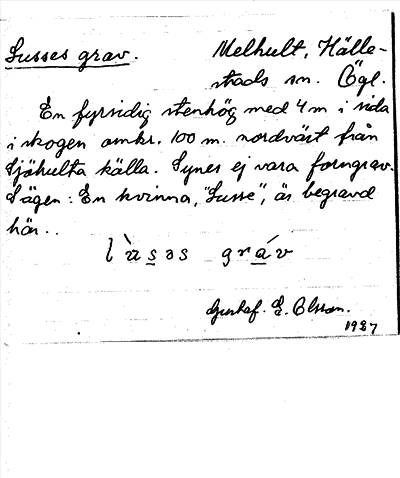 Susses grav. Melhult, Hälle-
stads sn. Ögl.
En fyrsidig stenhög med 4 m i sida
i skogen omkr. 100 m. nordväst från
Sjöhulta källa. Synes ej vara forngrav.
Sägen: En kvinna, "Susse", är begravd
här..
gráv
Gustaf. E. Olsson.
1927